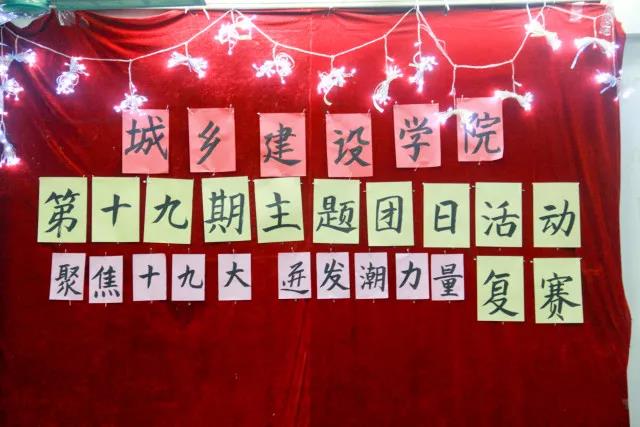 城乡建设学院
第十九期主题团日活动
聚焦十九大 迸发潮力量 复赛